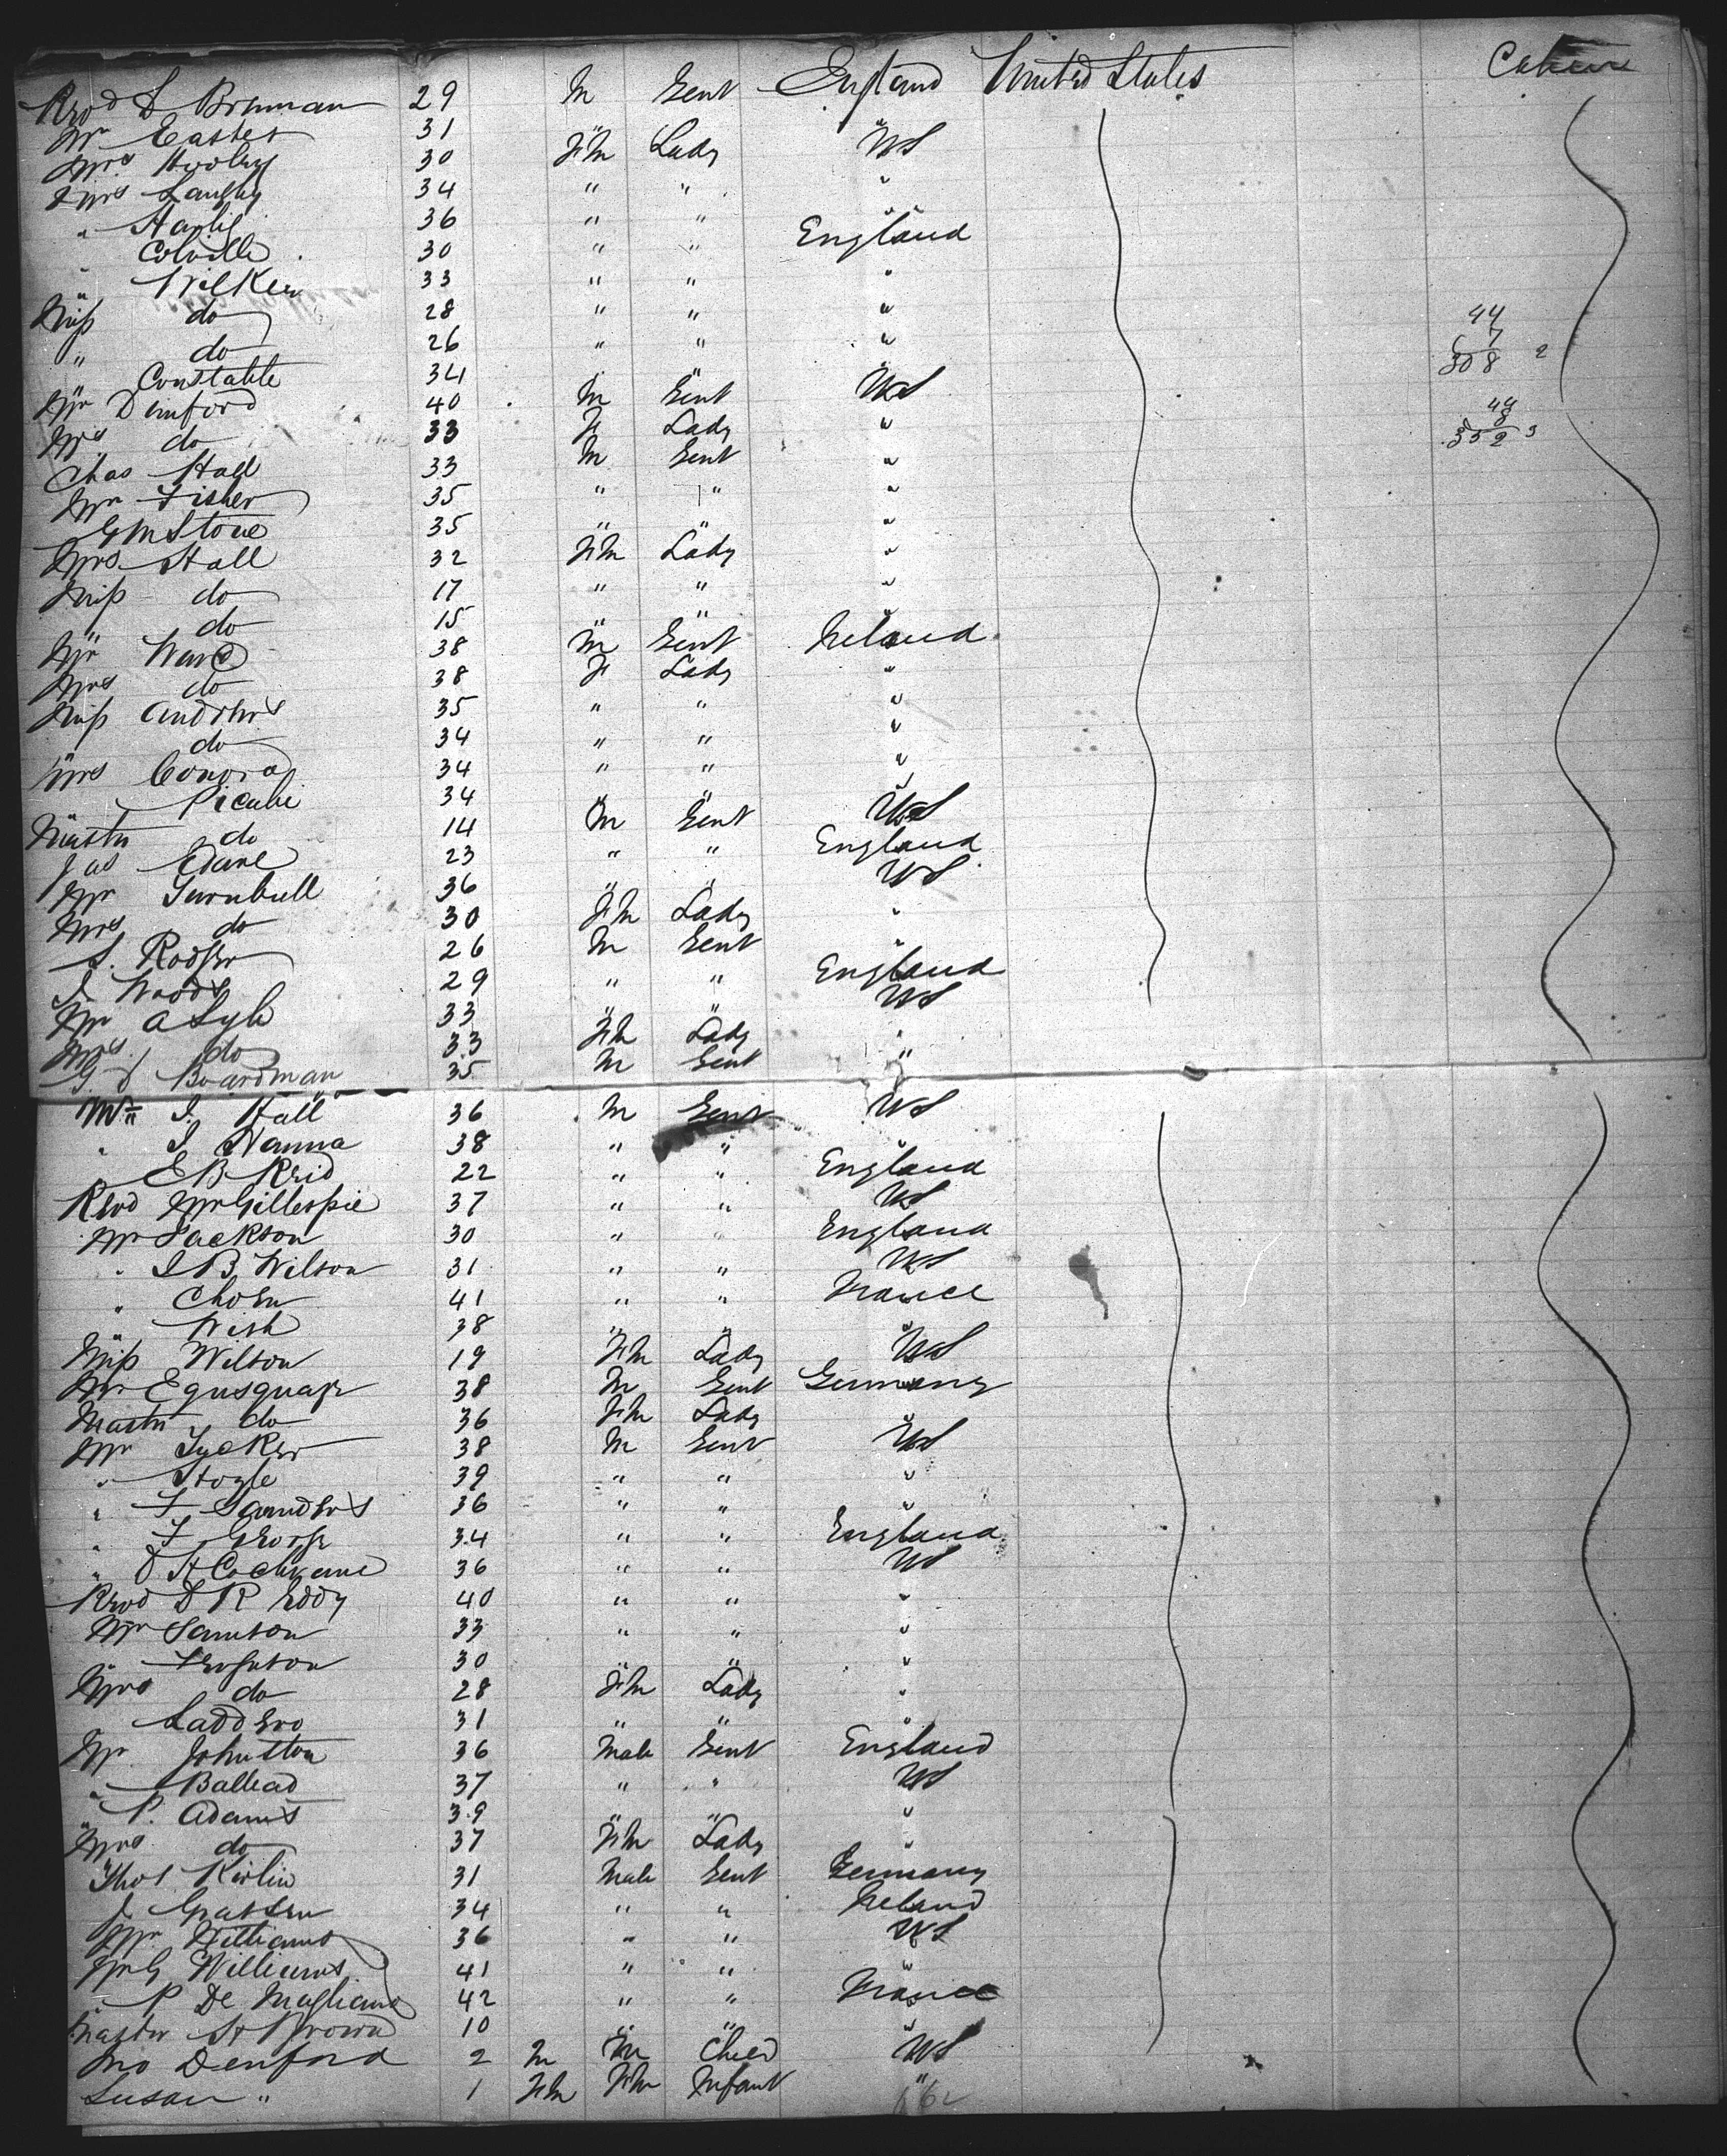 Revd S Brennan 29 M Gent England United States Cabin
Mr Easter 31 " "
Mrs Hooley 30 Fm Lady US
Mrs Langley 34 " " "
" 36 " " "
Colville 30 " " England
" Wilkes 33 " " "
Miss do 28 " " "
" do 26 " " " 44
7
308 2
Constable 34 " "
Mr Denford 40 M Gent US
Mrs do 33 F Lady " 44
8
352 3
Chas Hall 33 M Gent "
Mr Fisher 35 " " "
G M Stone 35 " " "
Mrs Hall 32 Fm Lady "
Miss do 17 " " "
do 15 " "
Mr Ward 38 M Gent Ireland
Mrs do 38 F Lady "
Miss Andrews 35 " " "
do 34 " " "
Mrs Conora 34 " " "
34 " "
Master do 14 M Gent US
Jas Adare 23 " " England
Mr Turnbull 36 " " US
Mrs do 30 Fm Lady "
S. Rodger 26 M Gent "
J Woods 29 " " England
Mr A Lyle 33 " " US
Mrs do 33 Fm Lady "
G S Boardman 35 M Gent "
Mr J. Hall 36 M Gent US
" J Hanna 38 " " "
" E B Reid 22 " " England
Revd Mr Gillespie 37 " " US
Mr Jackson 30 " " England
" J B Wilson 31 " " US
" Cholu 41 " " France
" Wish 38 " " "
Miss Wilson 19 Fm Lady US
Mr 38 M Gent Germany
Master do 36 Fm Lady "
Mr Tucker 38 M Gent US
" Hoyle 39 " " "
" F Saunders 36 " " "
" F George 34 " " England
" D H Cochrane 36 " " US
Revd D R Eddy 40 " " "
Mr Samson 33 " " "
" Ferguson 30 " " "
Mrs do 28 Fm Lady "
31 " " "
Mr Johnston 36 Male Gent England
" Ballead 37 " " US
" P. Adams 39 " " "
Mrs do 37 Fm Lady "
Thos Kirlin 31 Male Gent Germany
J Grassen 34 " " Ireland
Mr Williams 36 " " US
Mr G Williams 41 " " "
" P De Magliano 42 " " France
Master H Brown 10 " " "
Jno Denford 2 M M Child US
Susan " 1 Fm Fm Infant "